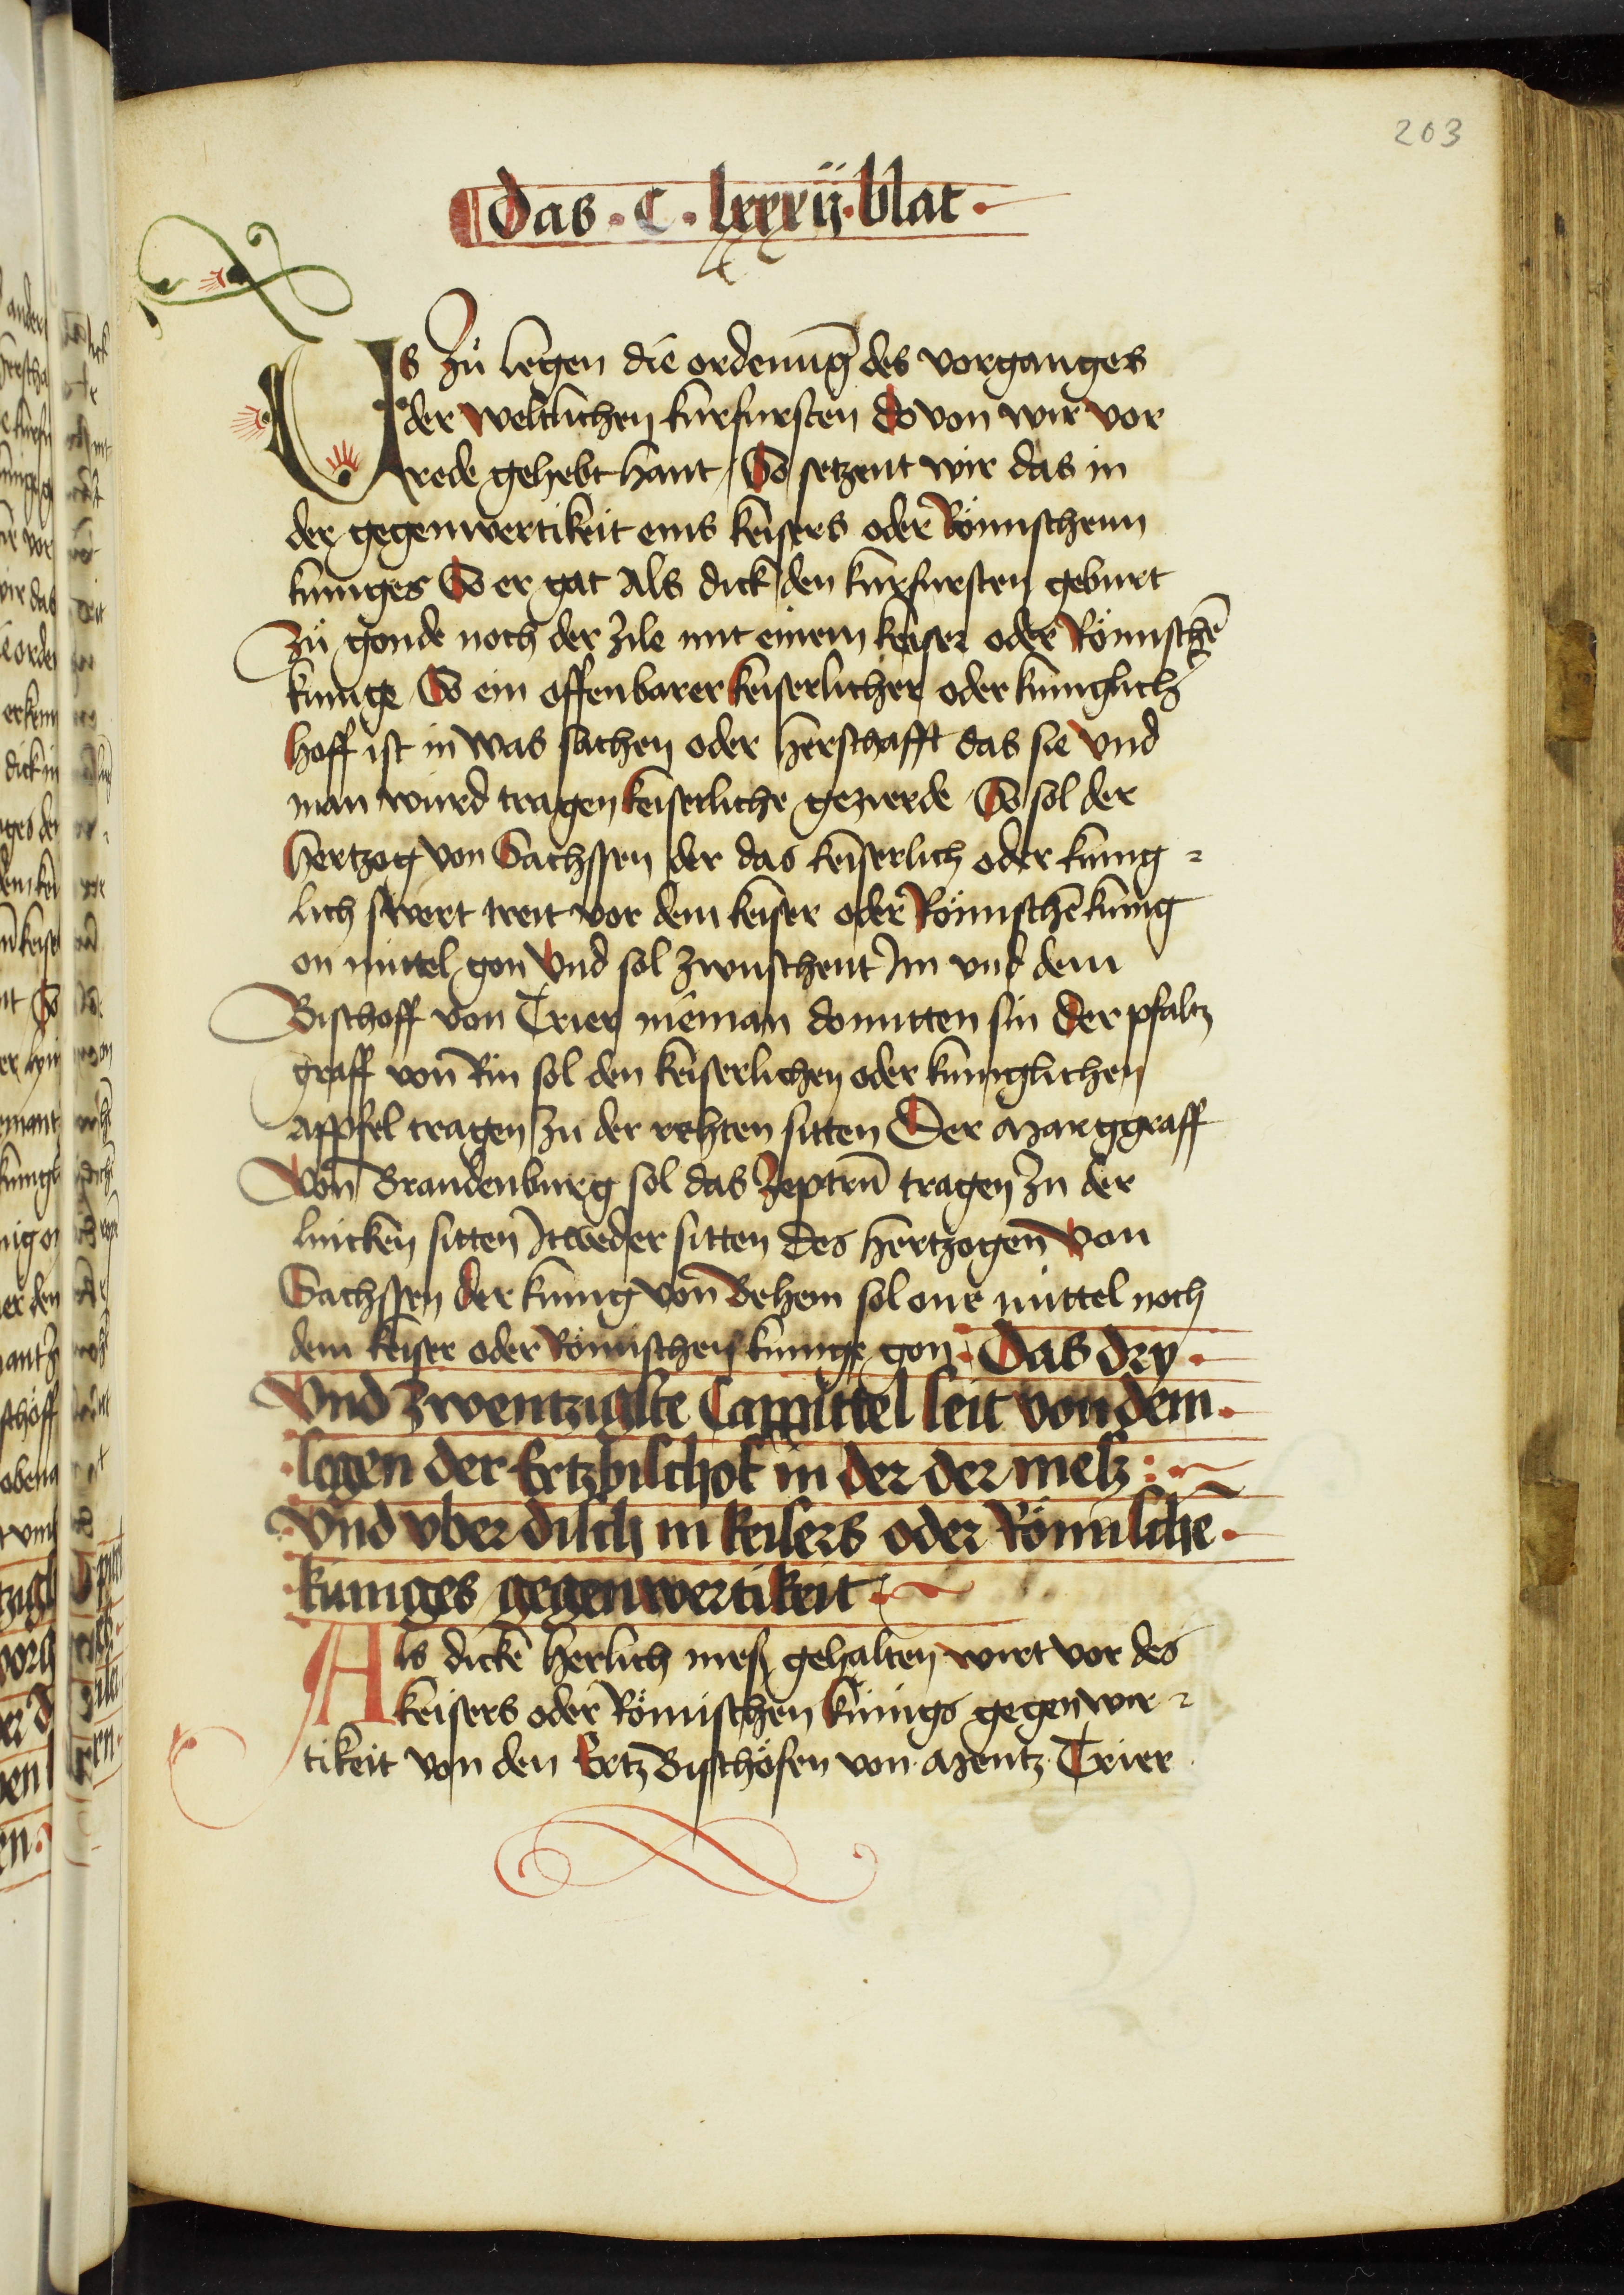 203
Das · C · lxxxij · blat ·
Us zů legen die ordenu̅g des vorganges
der weltlichen kurfursten do von wir vor
rede gehebt hant / So setzent wir das in
der gegenwertikeit eins keisers oder Römschenn
kuniges So er gat Als dick den kurfursten geburt
Zů gonde noch der zile mit einem keiser oder Römsche̅
kunige So ein offenbarer keiserlicher oder kuniglich̛
hoff ist in was sachen oder herschafft das sie vnd
man wurd tragen keiserliche gezierde So sol der
hertzog von Sachssen der das keiserlich oder kunig=
lich swert treit vor dem keiser oder Römsche̅ kunig
on mittel gon Vnd sol zwuschent Im vnd dem
Bischoff von Trier nieman domitten sin Der pfaltz
graff von Rin sol den keiserlichen oder kuniglichen
Appfel tragen Zu der rehten sitten Der Marggraff
Von Brandenburg sol das Zeptru̅ tragen Zu der
lincken sitten Itweder sitten Des hertzogen von
Sachssen Der kunig von Behem sol one mittel noch
dem keiser oder Römischen kunige gon · Das dry ·
Vnd Zwentzigste Cappittel seit von dem ·
· segen der Ertzbischof in der der mesz :
Vnd vber disch in keisers oder Römische̅ ·
· kuniges gegenwertikeit ·
Als dicke herlich mesz gehalten wirt vor des
keisers oder Römischen kunigs gegenwer=
tikeit von den Ertz Bisschöfen von · Mentz · Trier